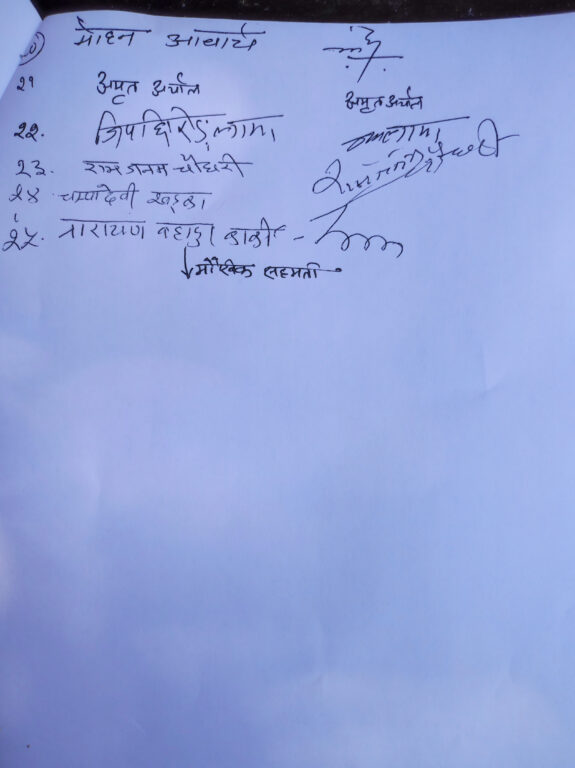 २० मोहन आचार्य
२१ अमृत अर्याल अमृत अर्याल
२२. लामा
२३. राम जनम चौधरी
२४ चम्पादेवी खड्का
२५. नारायण बहादुर कार्की -
↓ मौखिक सहमती